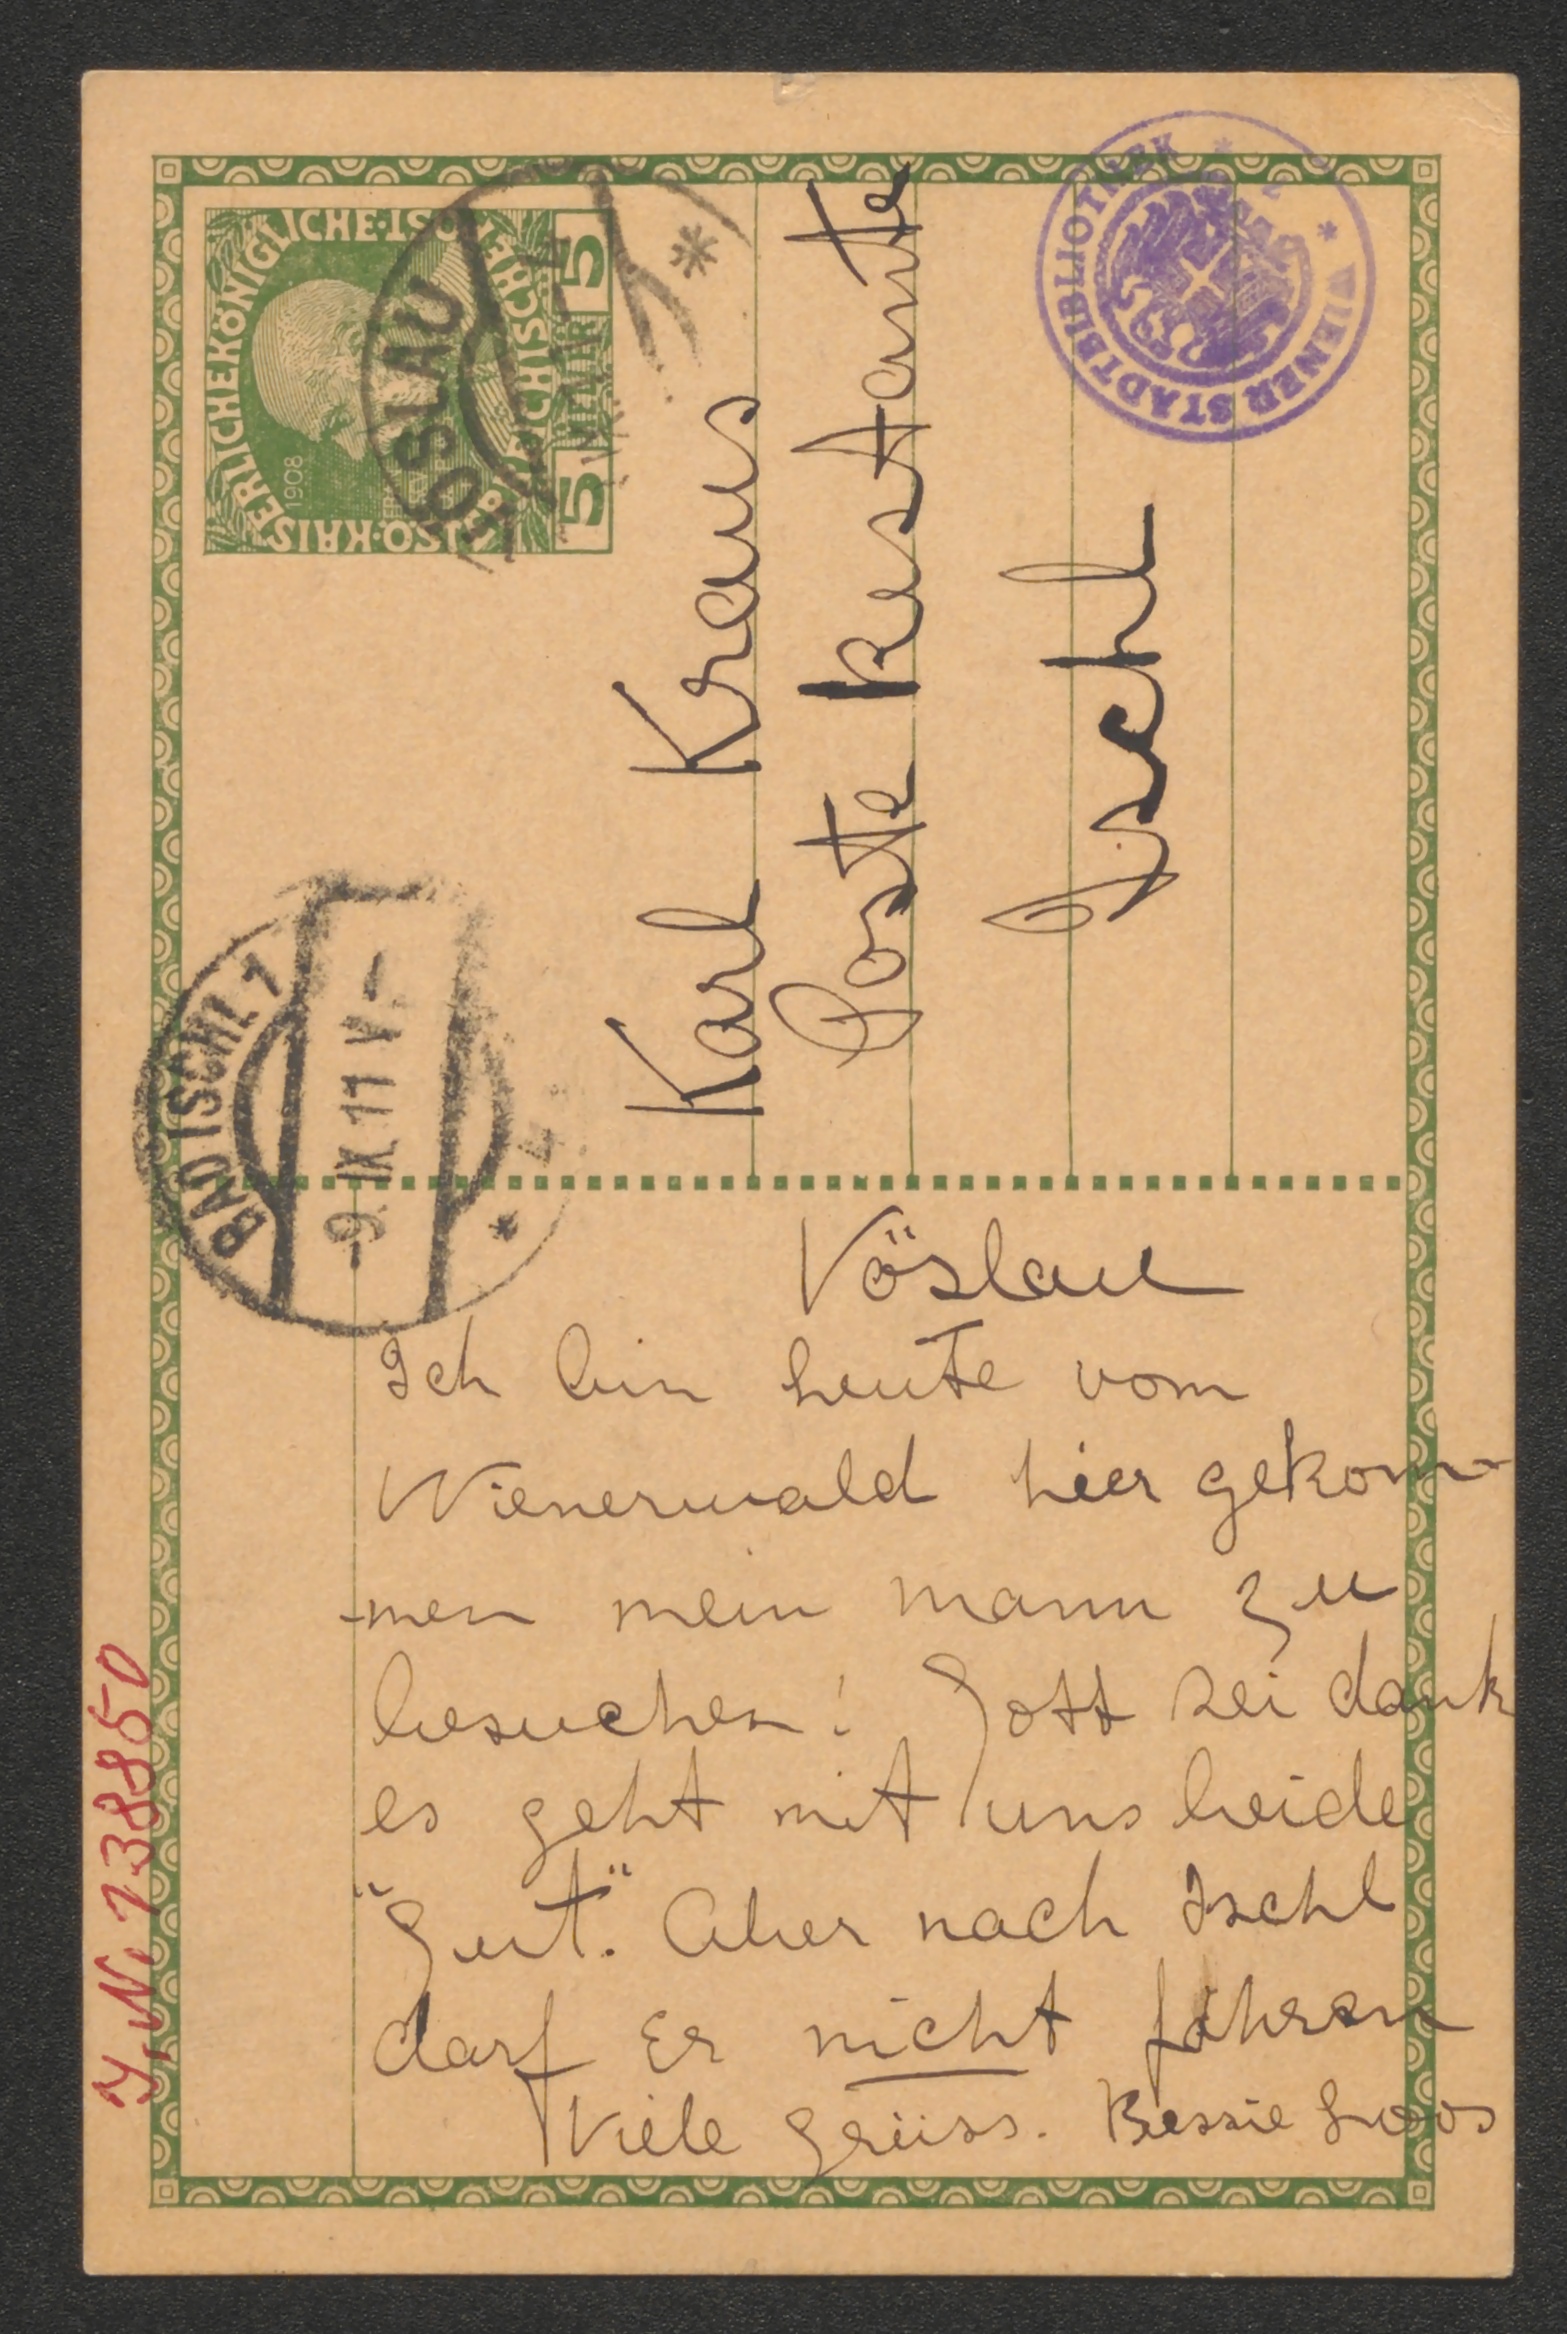 KAISERLICHEKÖNIGLICHE·ÖSTERREICHISCHE·POST
1908
5 5
VÖSLAU
WIENER STADTBIBLIOTHEK
Karl Kraus
Poste restante
Ischl
BAD ISCHL 1
-9.IX.11 V-
Vöslau
Ich bin heute vom
Wienerwald hier gekom-
-men mein mann zu
besuchen! Gott sei dank
es geht mit uns beide
"Gut." Aber nach Ischl
darf Er nicht fahren
Viele grüss. Bessie Loos
J.N. 138850